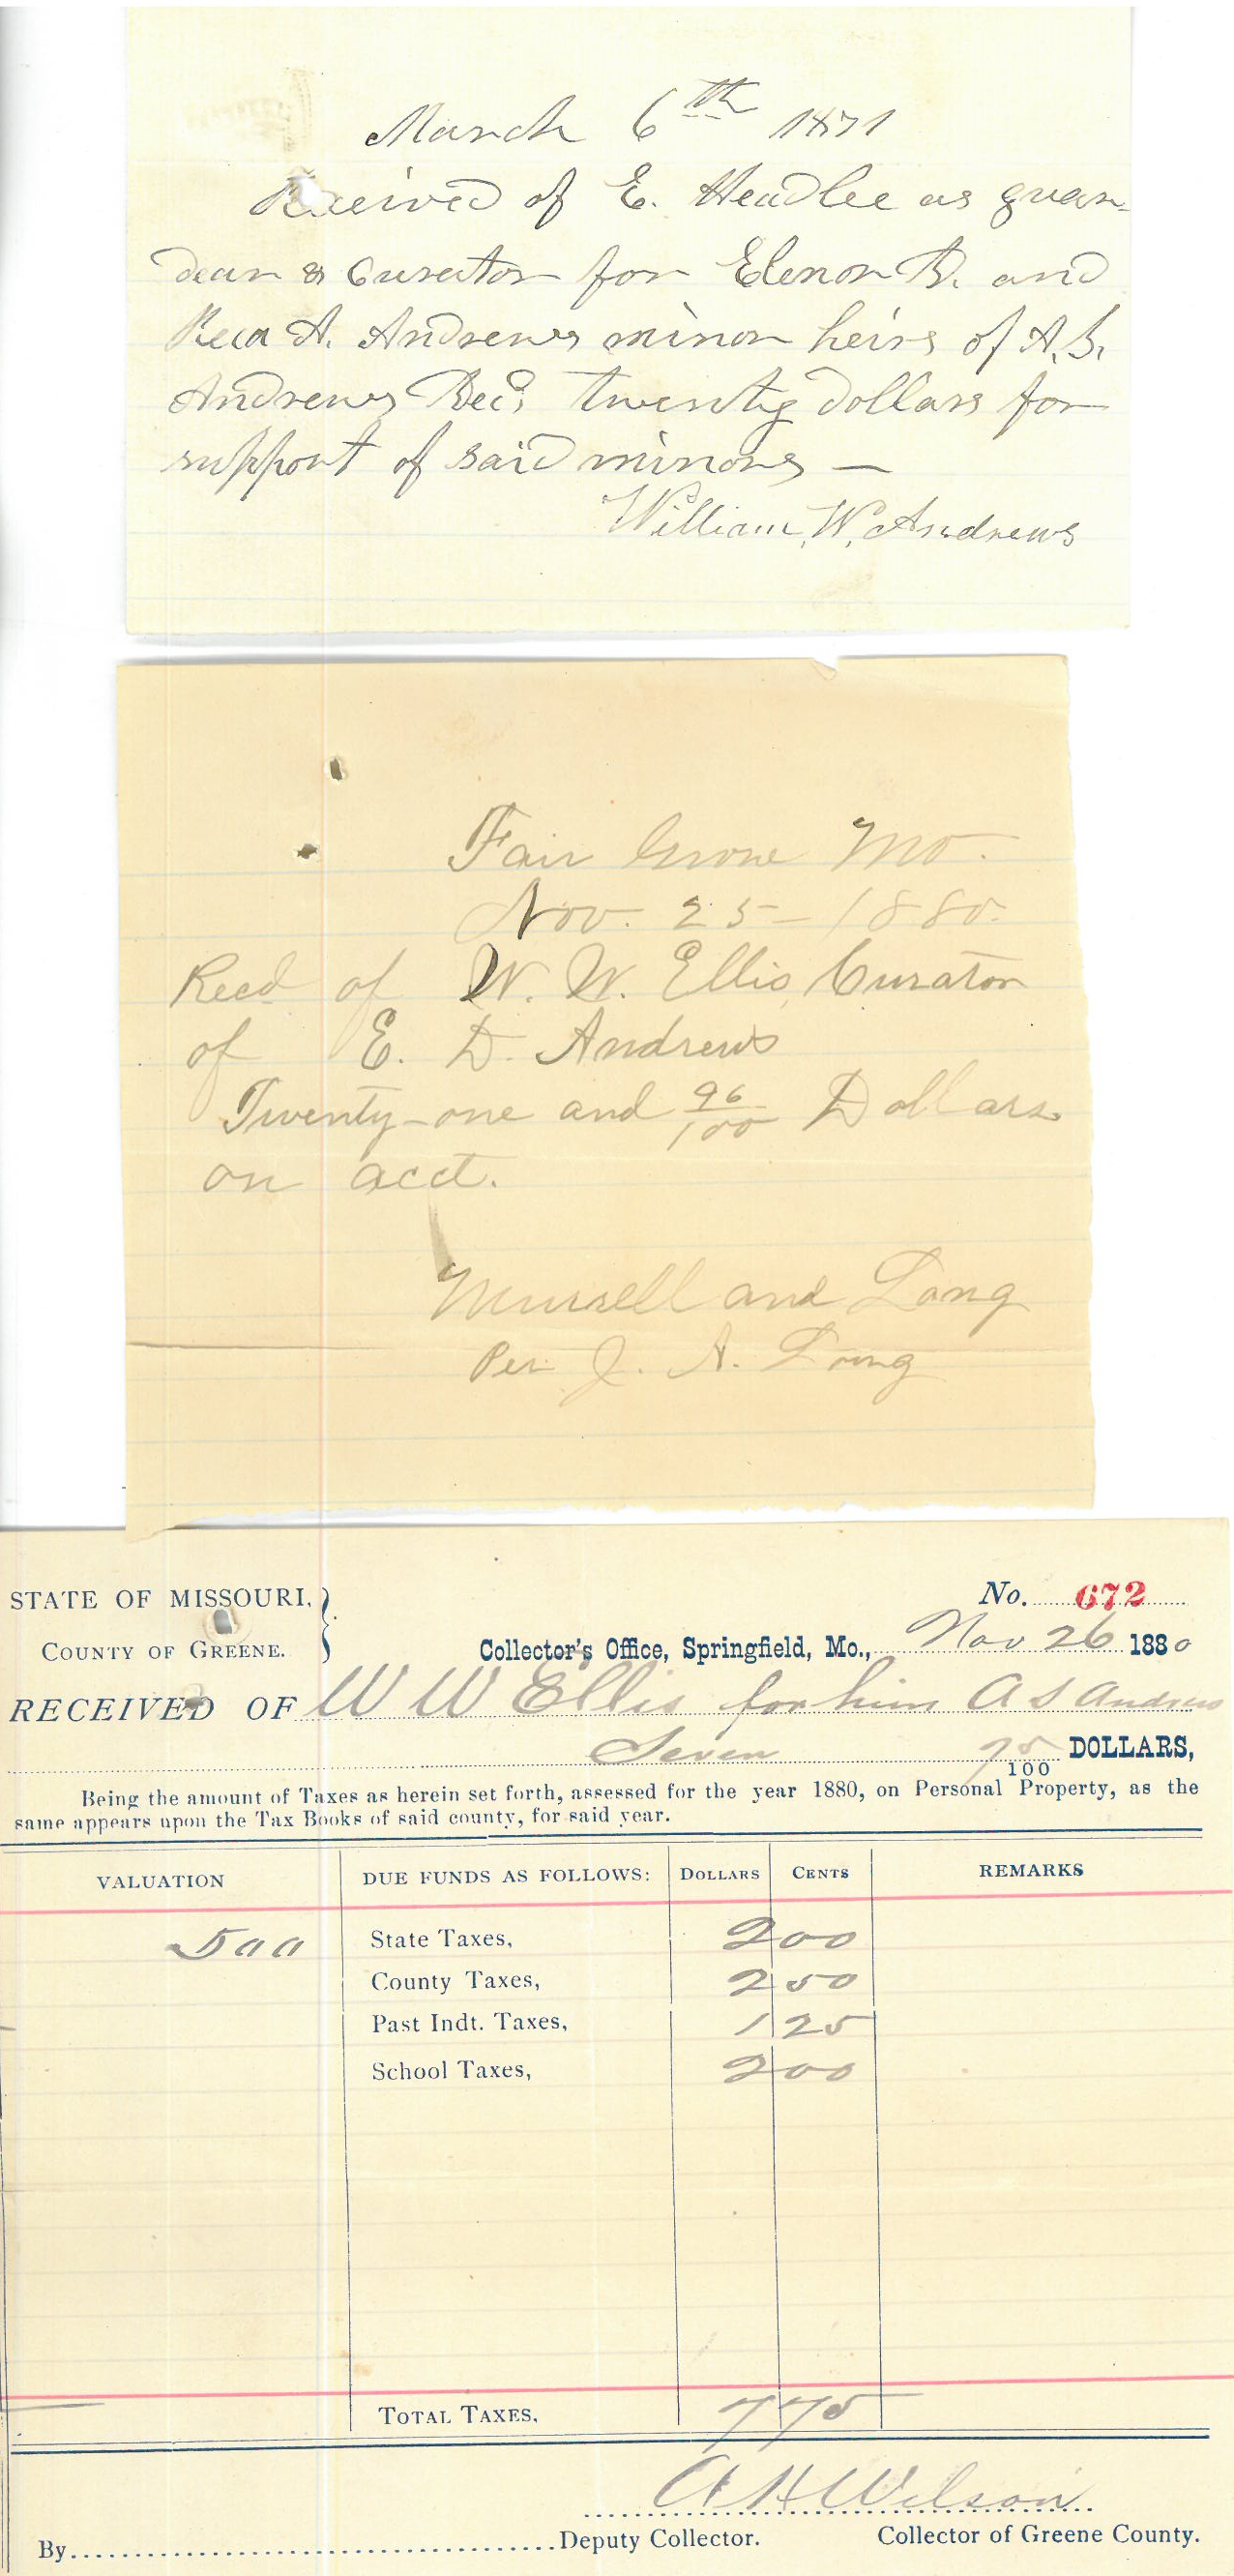 March 6th 1871
Received of E. Headlee as guar-
dean & Curator for Elenor B. and
A. Andrews minor heirs of A.S.
Andrews Decd twenty dollars for
support of said minors —
William W. Andrews
Fair Grove Mo.
Nov. 25 - 1880.
Recd of W. W. Ellis, Curator
of E. D. Andrews
Twenty-one and 96/100 Dollars
on acct.
and Long
Per J. A. Long
STATE OF MISSOURI,
COUNTY OF GREENE.
No. 672
Collector's Office, Springfield, Mo., Nov 26 1880
RECEIVED OF W W Ellis for him A S Andrews
Seven 75/100 DOLLARS,
Being the amount of Taxes as herein set forth, assessed for the year 1880, on Personal Property, as the
same appears upon the Tax Books of said county, for said year.
VALUATION DUE FUNDS AS FOLLOWS: DOLLARS CENTS REMARKS
500 State Taxes, 2 00
County Taxes, 2 50
Past Indt. Taxes, 1 25
School Taxes, 2 00
TOTAL TAXES, 7 75
A H Wilson
By Deputy Collector. Collector of Greene County.